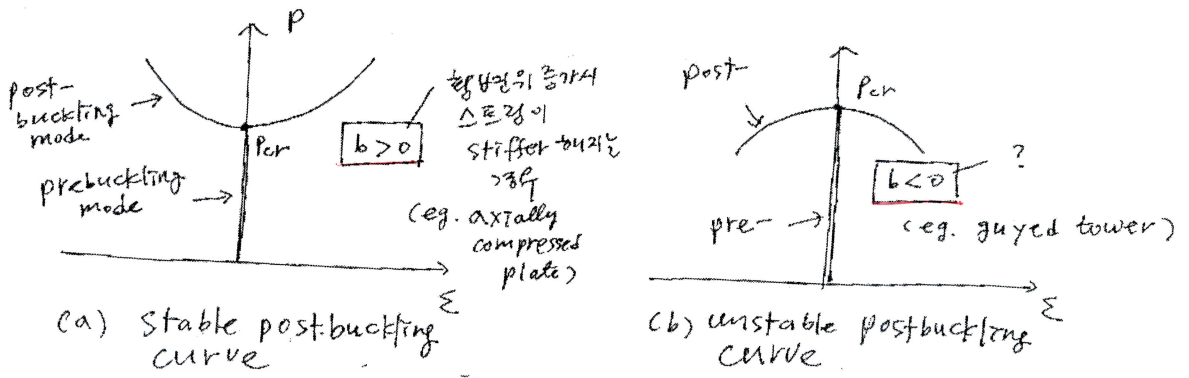 P
post-
buckling
mode
Pcr
prebuckling
mode
b>0
횡변위 증가시
스프링이
stiffer 해지는
경우
(eg. axially
compressed
plate)
ξ
(a) stable postbuckling
curve
post-
Pcr
b<0
?
pre-
(eg. guyed tower)
ξ
(b) unstable postbuckling
curve